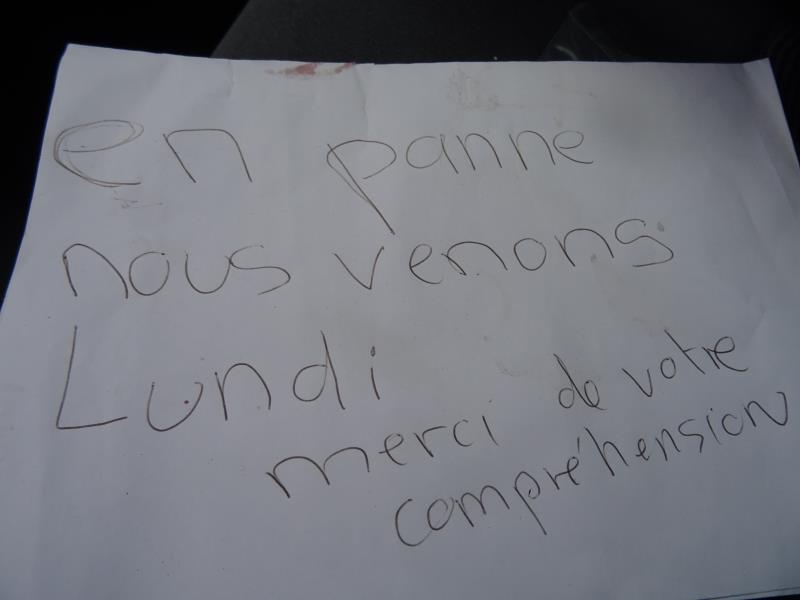 en panne
nous venons
Lundi
merci de votre
compréhension